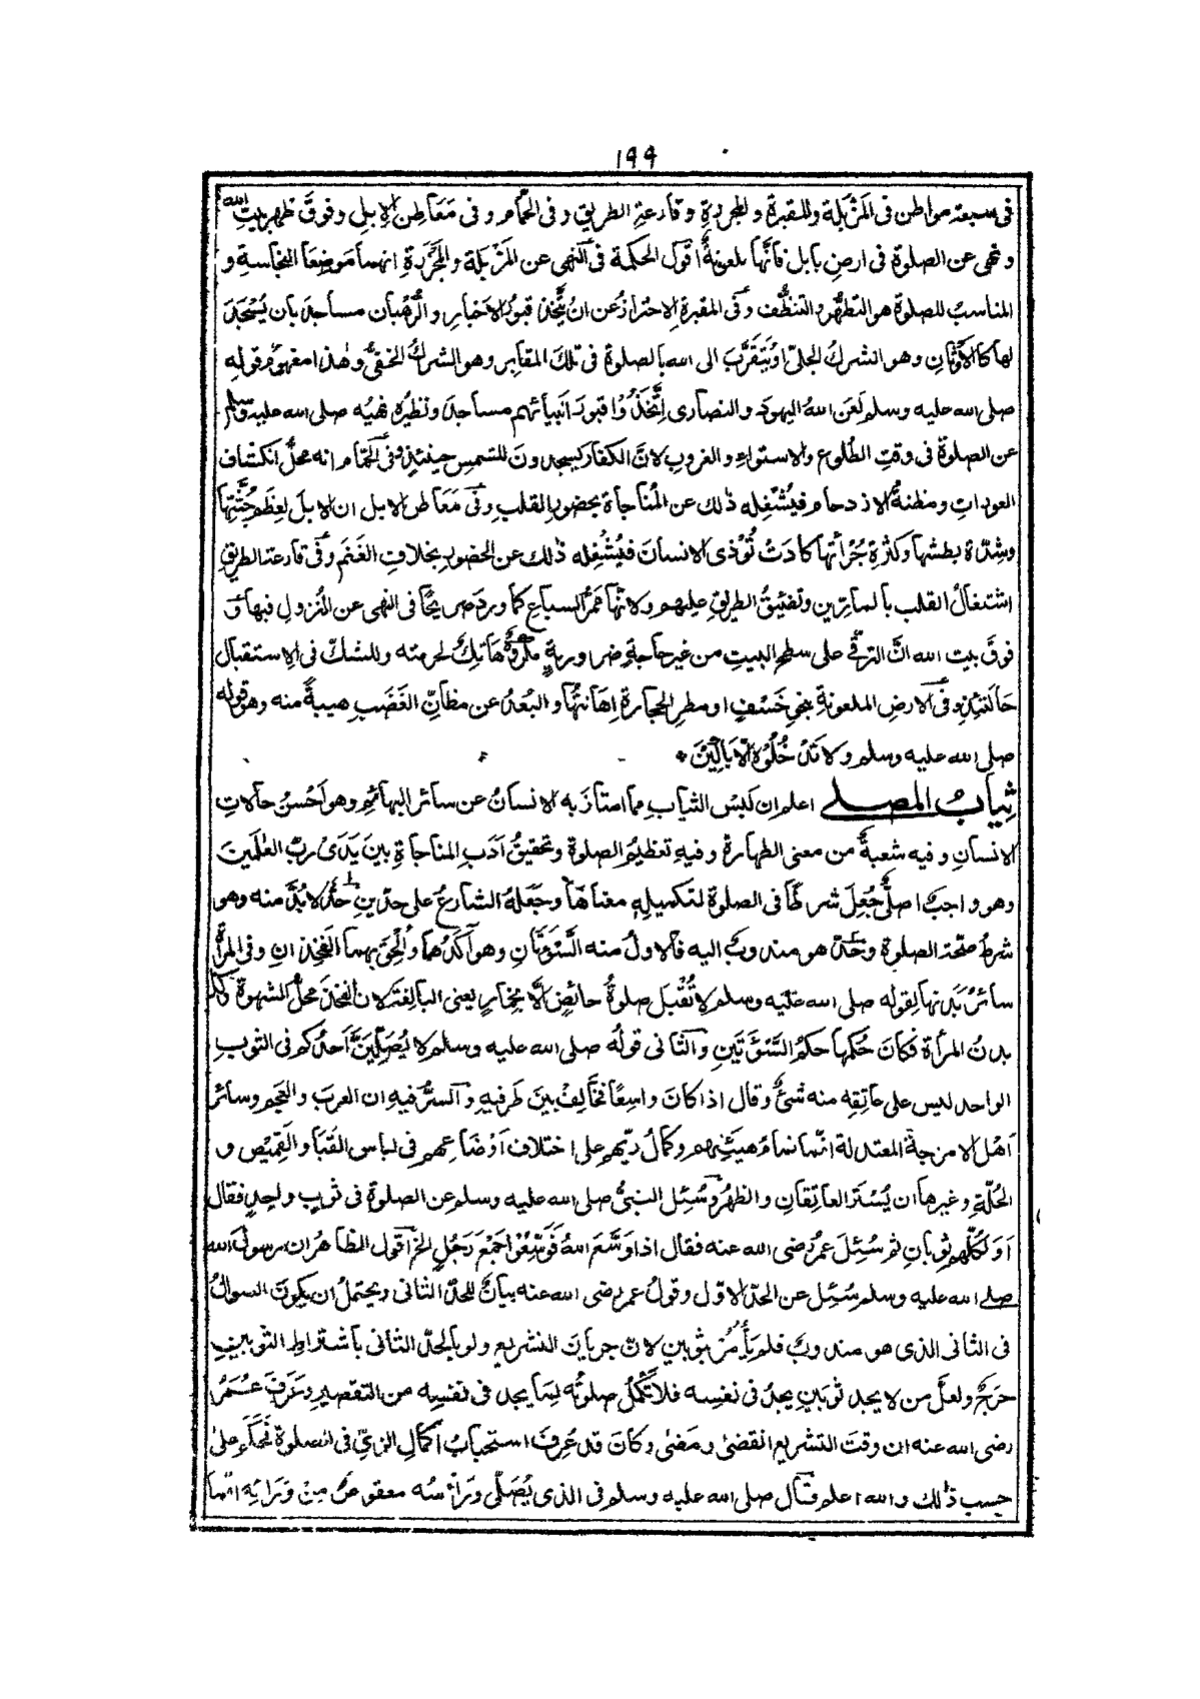 ۱۹۹
فى سبعة مواطن فى المَزْبَلة والمقبرة والمجزرةِ وقارعةِ الطريقِ وفى الحمَّام وفى مَعَاطِن الابِلِ وفوقَ ظهرِ بيتِ الله
ونهى عن الصلوة فى ارضِ بابل فانَّها ملعونةٌ اقول الحكمة فى النهى عن المَزْبَلة والمجْزَرةِ انهما مَوضِعَا النجاسةِ و
المناسبُ للصلوة هو التطهُّر والتنظُّف وفى المقبرةِ الاحترازُ عن انْ يُتَّخذ قبورُ الاحْبارِ والرُّهْبان مساجدَ بان يُسْجَدَ
لها كالاَوْثانِ وهو الشركُ الجلىّ او يُتقَرَّبَ الى الله بالصلوة فى تلكَ المقابرِ وهو الشركُ الخفىُّ وهذا مفهومُ قولِه
صلى الله عليه وسلم لعَنَ اللهُ اليهودَ والنصارى اِتَّخَذُوا قبورَ اَنبيائهم مساجدَ ونظيرُه نهيُه صلى الله عليه وسلم
عن الصلوة فى وقتِ الطُلوعِ والاستواءِ والغروبِ لانَّ الكفارَ يسجدونَ للشمسِ حينئذٍ وفى الحمّام انه محلُّ انكشاف
العوراتِ ومظنةُ الازدحام فيُشْغِله ذلك عن المُناجاةِ بحضورِ القلبِ وفى مَعَاطن الابل ان الابلَ لِعِظَمِ جُثَّتِها
وشِدّةِ بطشِها وكثْرةِ جُرْأتِها كادَتْ تُوْذى الانسانَ فيُشْغِله ذلك عن الحضورِ بخلافِ الغَنَمِ وفى قارعةِ الطريقِ
اشتغالُ القلب بالمارّين وتضييْقُ الطريقِ عليهم ولانَّها مَمَرُّ السباعِ كما وردَ صريحًا فى النهى عن النُزولِ فيها و
فوقَ بيت الله انَّ الترقّى على سطح البيت من غيرِ حاجةٍ ضروريةٍ مكروهٌ هاتِكٌ لحرمته وللشكّ فى الاستقبال
حالتئذٍ وفى الارضِ الملعونةِ بنحوِ خَسْفٍ او مطرِ الحجارةِ اِهَانتُها والبُعدُ عن مظانّ الغَضَبِ هيبةً منه وهو قوله
صلى الله عليه وسلم ولا تَدْخُلُوْه اِلّا بَاكِيْنَ
ثِيابُ المصلے اعلم ان لُبْسَ الثيابِ مما امتازَ به الانسانُ عن سائرِ البهائمِ وهو اَحْسنُ حالاتِ
الانسانِ وفيه شعبةٌ من معنى الطهارة وفيه تعظيمُ الصلوة وتحقيقُ ادَبِ المناجاةِ بينَ يَدَىْ ربّ العٰلَمينَ
وهو واجبٌ اصلىٌّ جُعِلَ شرطًا فى الصلوة لتكميله معناها وجَعَلَهُ الشارعُ على حدّينِ حدٍّ لا بُدَّ منه وهو
شرطُ صحّة الصلوة وحدٍّ هو مندوبٌ اليه فالاولُ منه السَّوْءَتانِ وهو آكدُهما واُلْحِقَ بهما الفخذانِ وفى المرأةِ
سائرُ بَدنها لقوله صلى الله عليه وسلم لا تُقْبَل صلوةُ حائضٍ اِلَّا بخمارٍ يعنى البالغةَ لان الفخذَ محلُّ الشهوةِ وكذا
بدنُ المرأة فكانَ حُكمُها حكمُ السَّوْءَتَينِ والثانى قولُه صلى الله عليه وسلم لا يُصَلِّيَنَّ اَحدُكم فى الثوبِ
الواحد ليس على عاتِقِه منه شئٌ وقال اذا كانَ واسِعًا فخالِفْ بينَ طَرفَيهِ والسرُّ فيه ان العربَ والعَجمَ وسائرَ
اَهْل الامزجةِ المعتدلة انّما تمامُ هيئتِهم وكمالُ زيّهم على اختلافِ اَوْضاعِهم فى لباسِ القَبَا والقَمِيْصِ و
الحُلّةِ وغيرها ان يُسْتَرَ العاتِقانِ والظهرُ وسُئِل النبىُّ صلى الله عليه وسلم عن الصلوةِ فى ثوبٍ واحدٍ فقال
اَوَلِكلِّكم ثوبانِ ثم سُئِلَ عمرُ رضى الله عنه فقال اذا وَسَّعَ اللهُ فَوَسِّعُوْا جَمَعَ رَجُلٌ الخ اقول الظاهرُ ان رسولَ الله
صلے الله عليه وسلم سُئِل عن الحدّ الاوّل وقولُ عمر رضى الله عنه بيانٌ للحدّ الثانى ويحتملُ ان يكونَ السوالُ
فى الثانى الذى هو مندوبٌ فلم يَأْمُرْ بثوبين لانّ جريانَ التشريعِ ولو بالحدّ الثانى باشتراطِ الثوبين
حَرَجٌ ولعلَّ من لا يجد ثوبَينِ يجدُ فى نفسِه فلا تكْمُلُ صلوتُه لما يجد فى نفسِه من التقصيرِ وعَرَفَ عُمَرُ
رضى الله عنه ان وقتَ التشريعِ انقضىٰ ومضىٰ وكانَ قد عُرِفَ استحبابُ اكمالِ الزىِّ فى الصلوة فحَكَمَ علىٰ
حسب ذلك والله اعلم وقال صلى الله عليه وسلم فى الذى يُصَلّى وَرَاْسُه معقوصٌ مِنْ وَرَائِهِ انّما